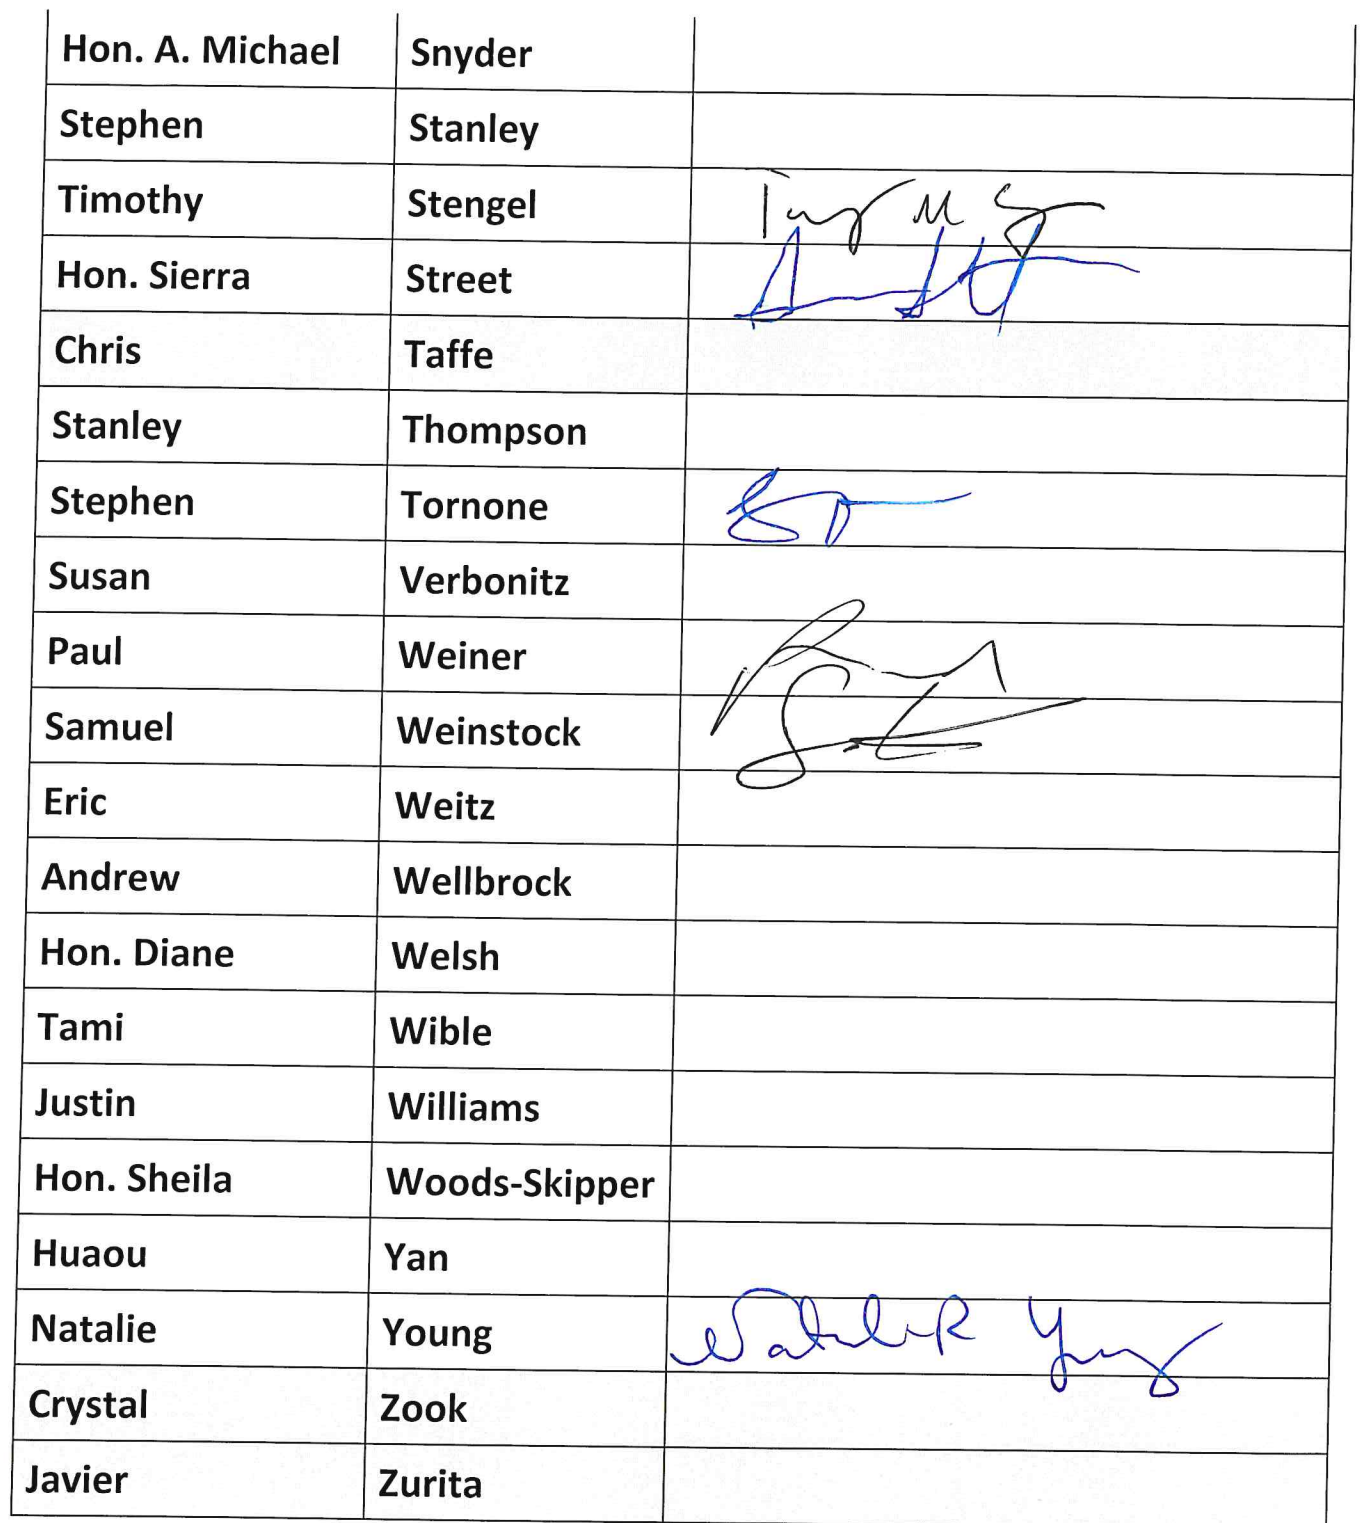 Hon. A. Michael Snyder
Stephen Stanley
Timothy Stengel
Hon. Sierra Street
Chris Taffe
Stanley Thompson
Stephen Tornone
Susan Verbonitz
Paul Weiner
Samuel Weinstock
Eric Weitz
Andrew Wellbrock
Hon. Diane Welsh
Tami Wible
Justin Williams
Hon. Sheila Woods-Skipper
Huaou Yan
Natalie Young Natalie R Young
Crystal Zook
Javier Zurita